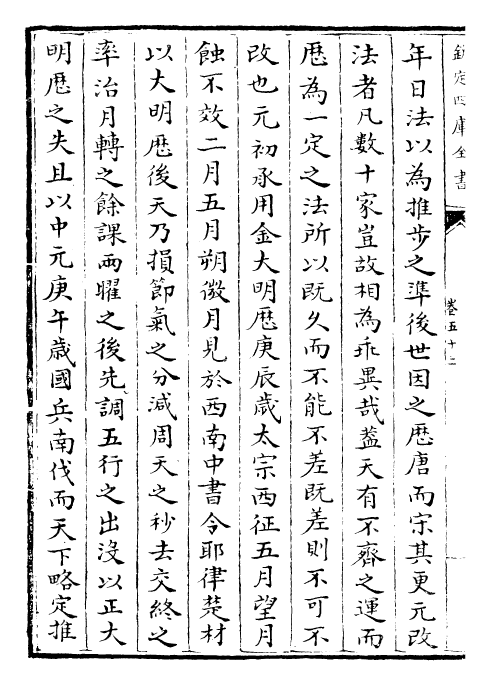 欽定四庫全書
卷五十二
年日法以為推步之準後世因之歴唐而宋其更元改
法者凡數十家豈故相為乖異哉葢天有不齊之運而
歴為一定之法所以既久而不能不差既差則不可不
改也元初承用金大明歴庚辰歳太宗西征五月望月
蝕不效二月五月朔微月見於西南中書令耶律楚材
以大明歴後天乃損節氣之分減周天之秒去交終之
率治月轉之餘課兩曜之後先調五行之出沒以正大
明歴之失且以中元庚午歳國兵南伐而天下略定推